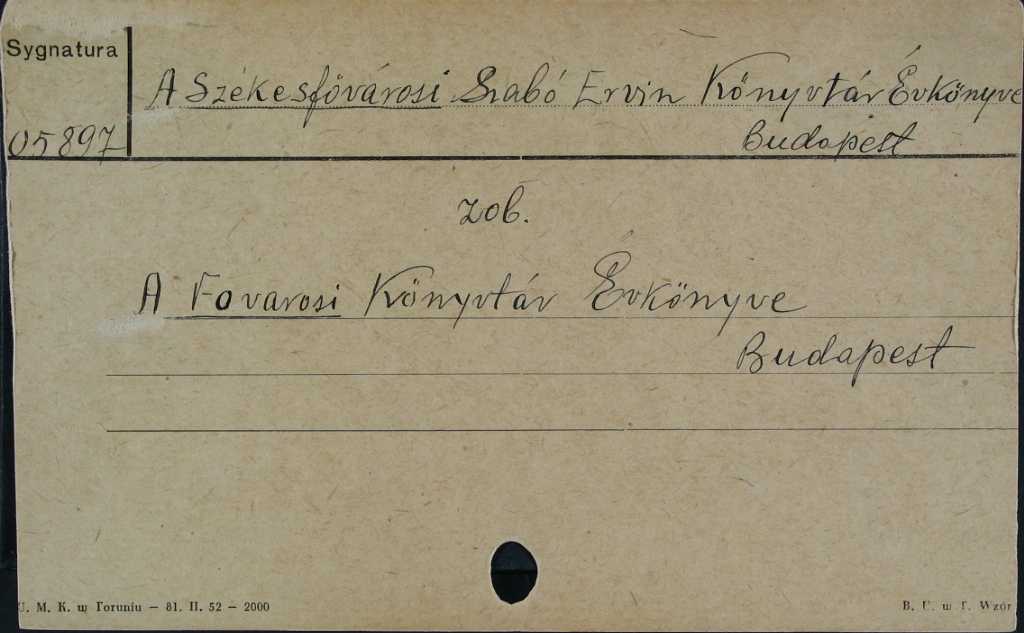 Sygnatura
A Székesfövárosi Szabó Ervin Könyvtár Évkönyve
05897
Budapest
zob.
A Fovarosi Könyvtár Évkönyve
Budapest
U. M. K. w Toruniu — 81. II. 52 — 2000
B. U. w T. Wzór